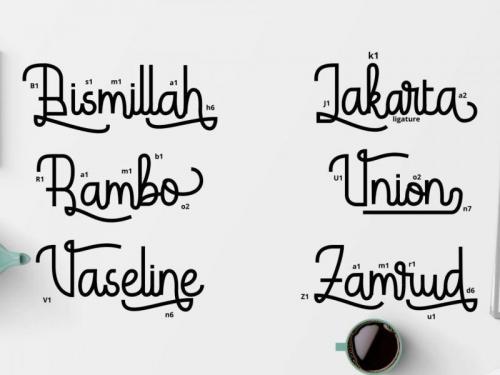 Bismillah
B1 s1 m1 a1 h6
Jakarta
J1 k1 a2 ligature
Rambo
R1 a1 m1 b1 o2
Union
U1 o2 n7
Vaseline
V1 n6
Zamrud
Z1 a1 m1 r1 u1 d6